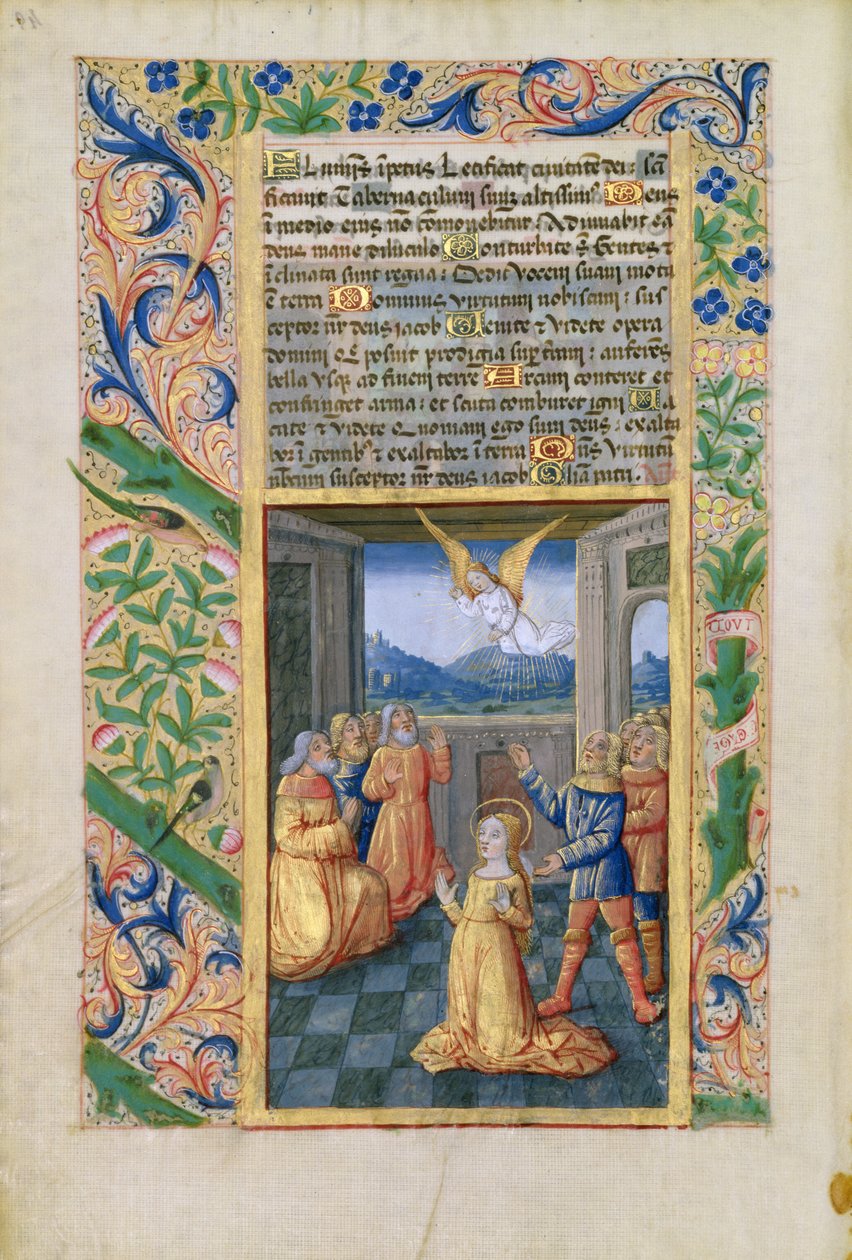 Flumīs īpetus Letificat ciuitatē dei: scī
ficauit Tabernaculum suuȝ altissimꝰ Deus
ī medio eius nō cōmouebitur. Adiuuabit eā
deus mane diluculo Conturbate sūt Gentes ⁊
īclinata sunt regna: Dedit vocem suam mota
ē terra Dominus virtutum nobiscum: sus
ceptor nr̄ deus iacob Uenite ⁊ videte opera
domini Q̄ posuit prodigia sup̄ t̄ram: auferens
bella vsqȝ ad finem terre Arcum conteret et
confringet arma: et scuta comburet igni Ua
cate ⁊ videte Quoniam ego sum deus: exalta
bor ī gentibꝰ ⁊ exaltabor ī terra Dn̄s virtutū
nobiscum susceptor nr̄ deus iacob Gl̄ia patri.